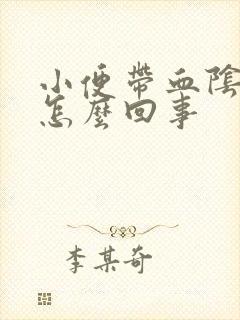 小便帶血陰
怎麼回事
李某奇